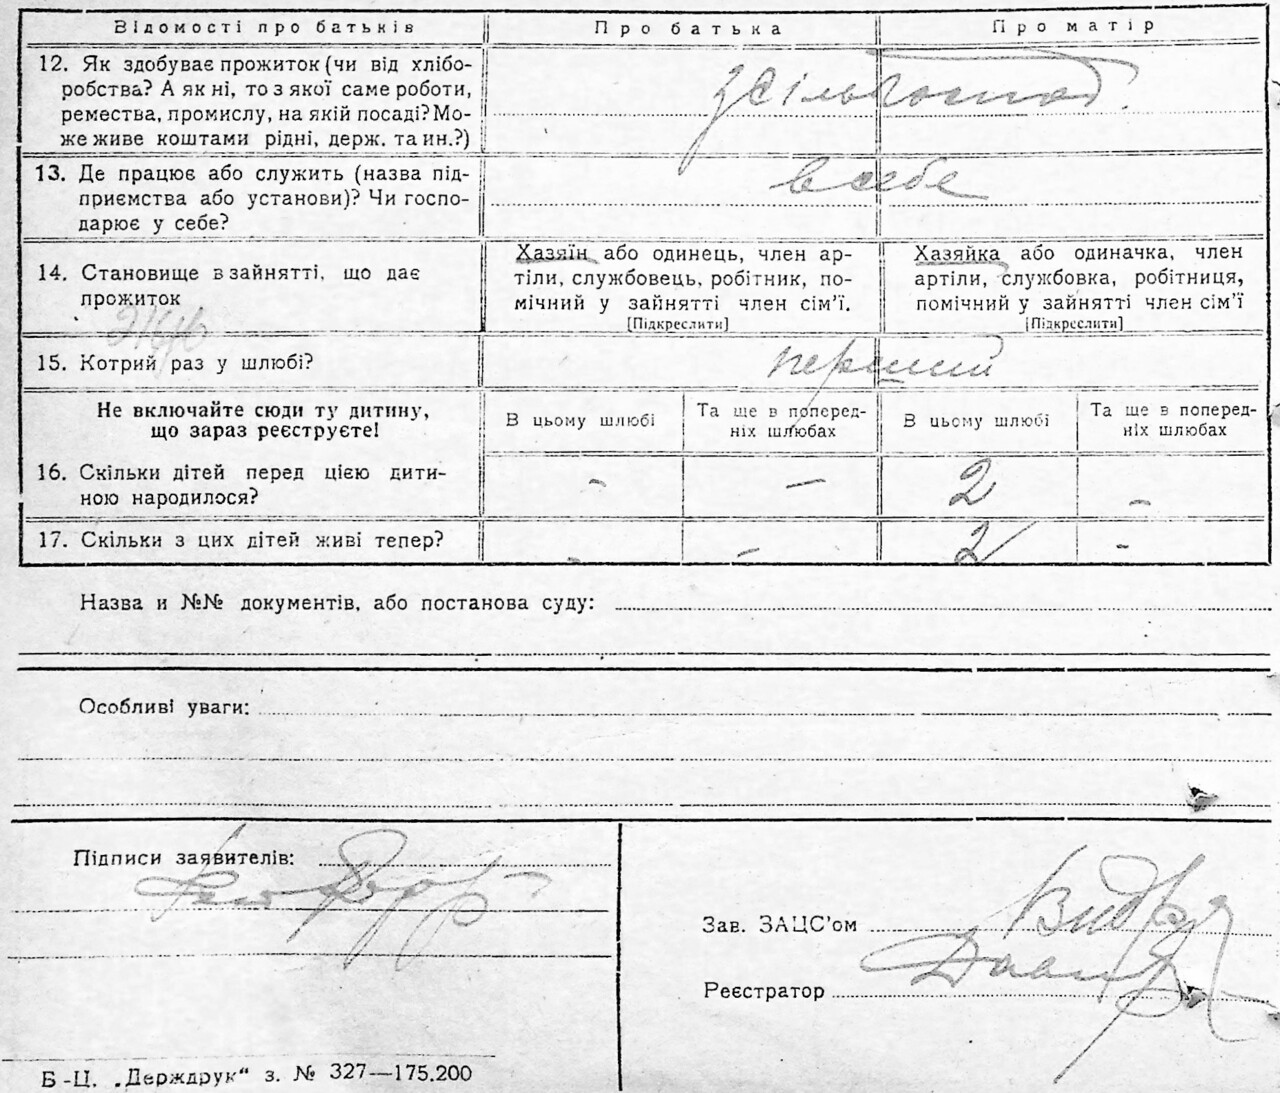 Відомості про батьків Про батька Про матір
12. Як здобуває прожиток (чи від хлібо-
робства? А як ні, то з якої саме роботи,
ремества, промислу, на якій посаді? Мо-
же живе коштами рідні, держ. та ин.?)
з сільгоспод.
13. Де працює або служить (назва під-
приємства або установи)? Чи госпо-
дарює у себе?
в себе
14. Становище в зайнятті, що дає
прожиток
Хазяїн або одинець, член ар-
тіли, службовець, робітник, по-
мічний у зайнятті член сім'ї.
[Підкреслити]
Хазяйка або одиначка, член
артіли, службовка, робітниця,
помічний у зайнятті член сім'ї
[Підкреслити]
15. Котрий раз у шлюбі? перший
Не включайте сюди ту дитину,
що зараз реєструєте!
В цьому шлюбі
Та ще в поперед-
ніх шлюбах
В цьому шлюбі
Та ще в поперед-
ніх шлюбах
16. Скільки дітей перед цією дити-
ною народилося?
- - 2 -
17. Скільки з цих дітей живі тепер? - - 2 -
Назва и №№ документів, або постанова суду:
Особливі уваги:
Підписи заявителів:
Зав. ЗАЦС'ом
Реєстратор
Б-Ц. „Держдрук" з. № 327—175.200